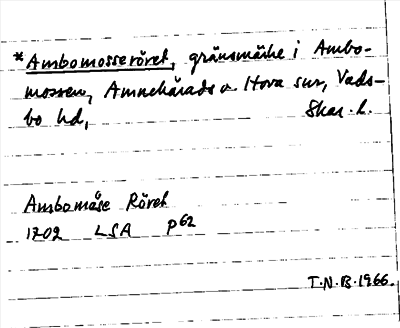 *Ambomosseröret, gränsmärke i Ambo-
mossen, Amnehärads o. Hova snr, Vads-
bo hd, Skar. l.
Ambomåse Röret
1702 LSA P62
T.N.B. 1966.